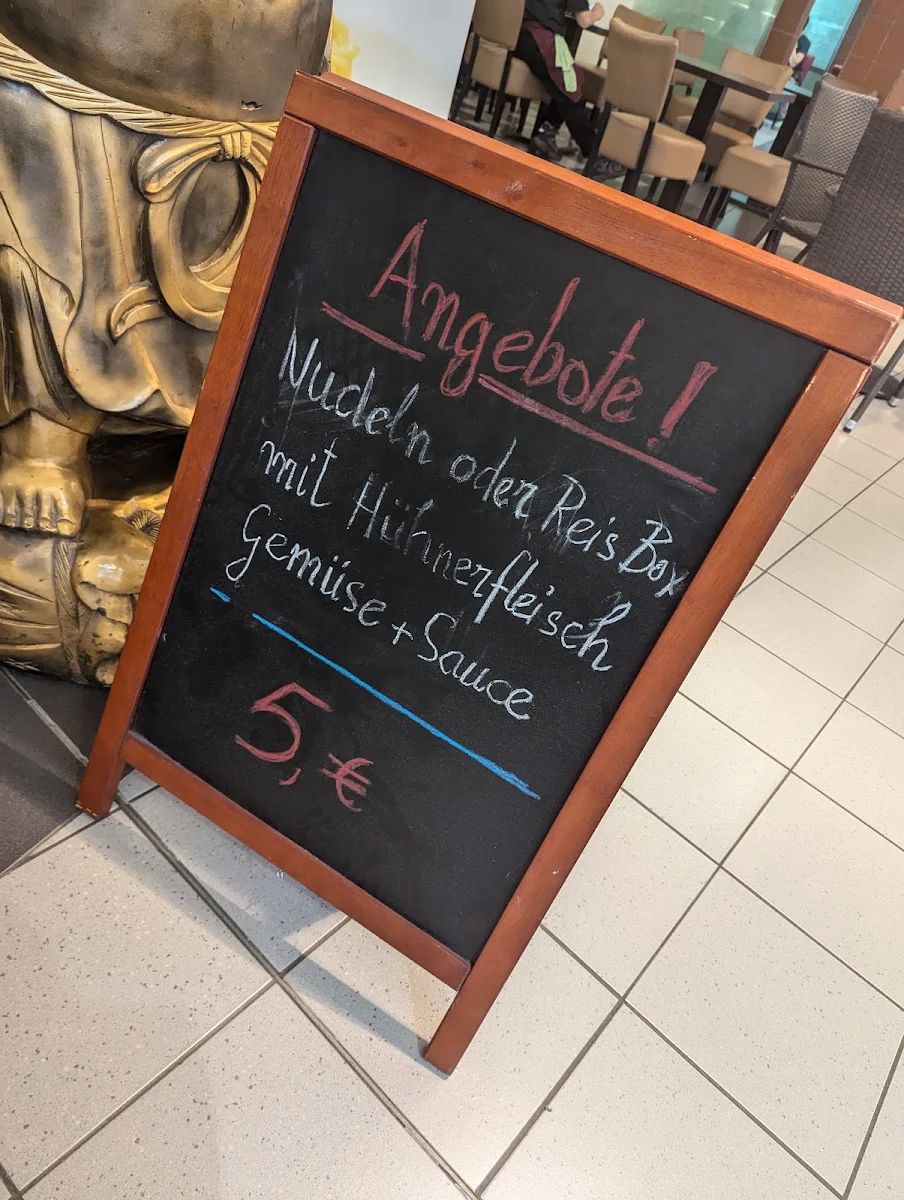 Angebote!
Nudeln oder Reis Box
mit Hühnerfleisch
Gemüse + Sauce
5,€